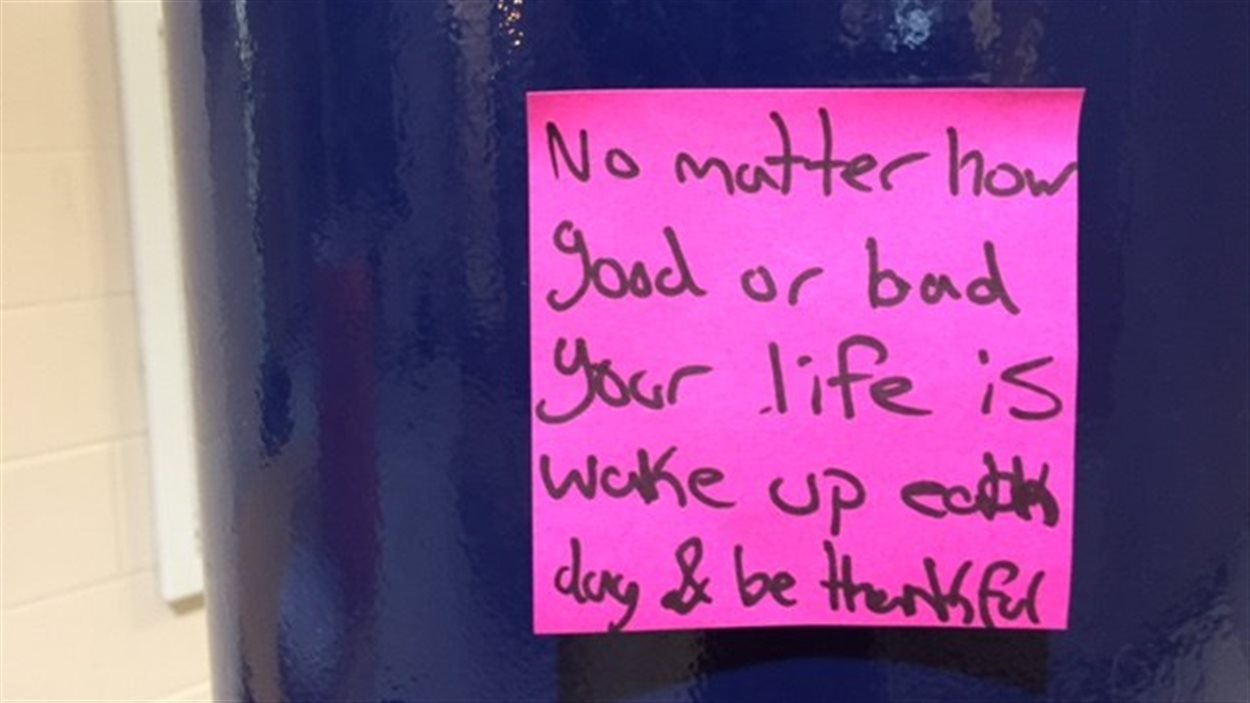 No matter how
good or bad
your life is
wake up each
day & be thankful